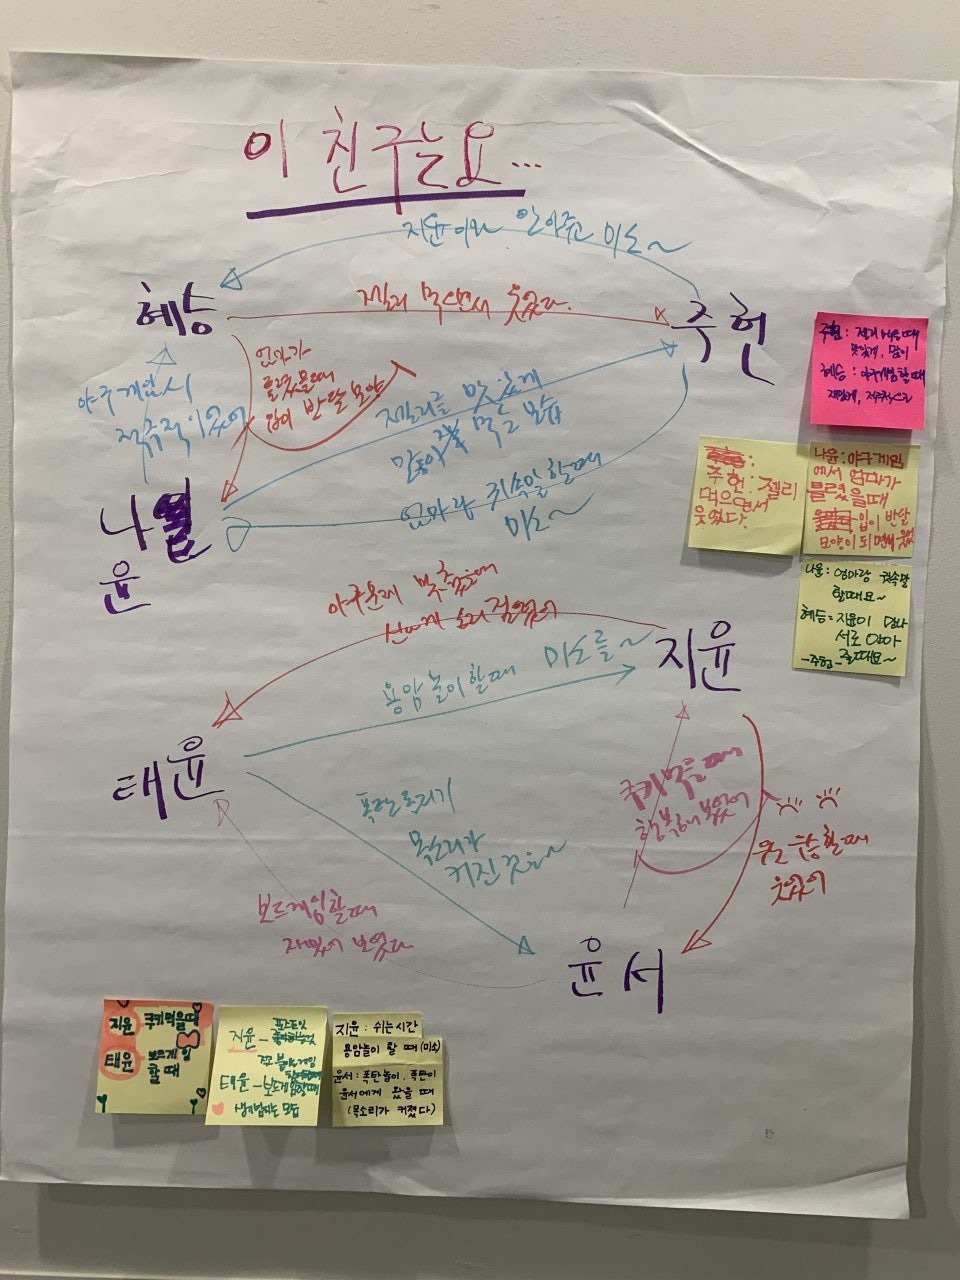 이 친구는요...
지윤이와 안아주고 미소~
혜승
젤리 먹으면서 웃었다.
주현
엄마가
물렸을때
입이 반달 모양
야구게임시
적극적이었어
젤리를 맛있게
먹을 모습
나
윤
엄마랑 귀속말할때
미소~
주현: 젤리 먹을때
맛있게, 많이
혜승: 야구게임할때
재밌게, 적극적으로
주현: 젤리
먹으면서
웃었다.
나윤: 야구게임
에서 엄마가
물렸을때
입이 반달
모양이 되면서
나윤: 엄마랑 귀속말
할때요~
혜승: 지윤이 만나
서로 안아
줄때요~
-주현-
야구문제 맞췄을때
신나게 소리 질렀어
지윤
용암놀이할때 미소를~
태윤
쿠키먹을때
행복해보였어
폭탄돌리기
목소리가
커진것을~
할때
웃었어
보드게임할때
재밌어 보였다
윤서
지윤 쿠키먹을때
태윤 보드게임
할때
지윤-
태윤-보드게임할때
생기넘치는 모습
지윤: 쉬는시간
용암놀이 할 때 (미소)
윤서: 폭탄놀이, 폭탄이
윤서에게 왔을 때
(목소리가 커졌다)